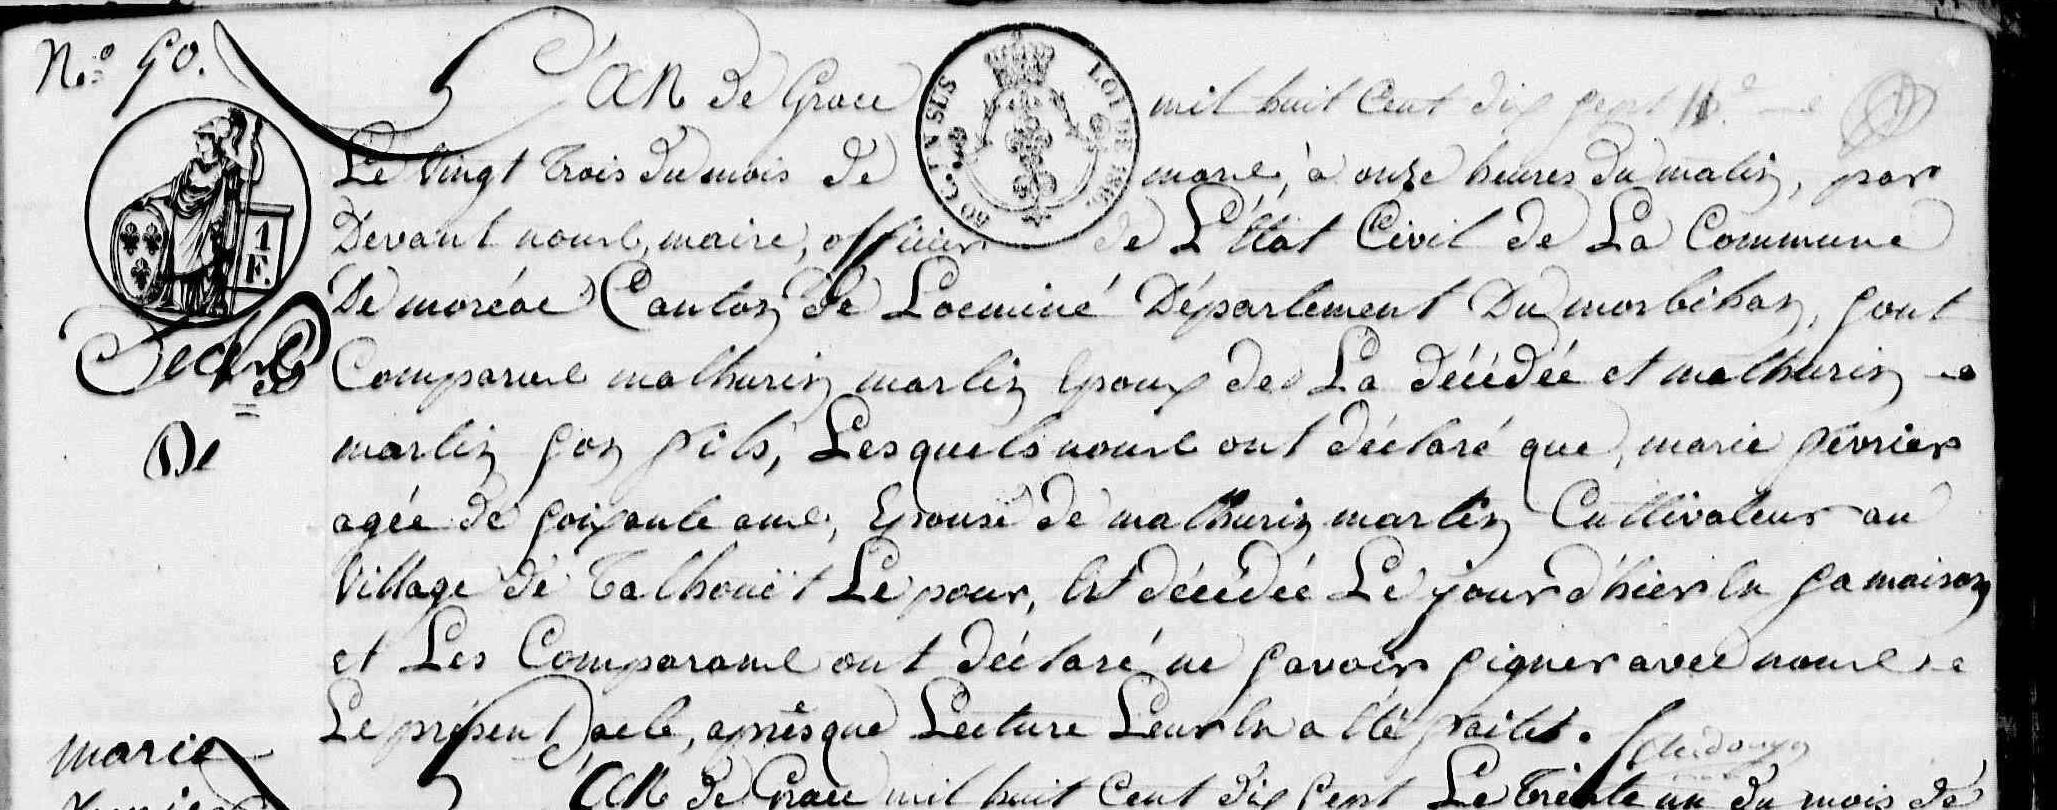 N.º 50.
L'AN de Grace mil huit Cent dix sept
Le Vingt trois du mois de mars, à onze heures du matin, par
Devant nous, maire, officier de L'état Civil de La Commune
De moréac Canton de Locminé Département Du morbihan, sont
Comparus mathurin martin Epoux de La décédée et mathurin
martin son fils, Lesquels nous ont déclaré que, marie fevrier
agée de soixante ans, Epouse de mathurin martin Cultivateur au
Village de Talhouët Le pour, Est décédée Le jour d'hier En sa maison
et Les Comparans ont déclaré ne savoir signer avec nous
Le présent acte, après que Lecture Leur En a été faite.
L'AN de Grace mil huit Cent dix sept Le Trente un du mois de
Décès
De
marie
50 C. EN SUS
LOI DE 1816.
1
F.